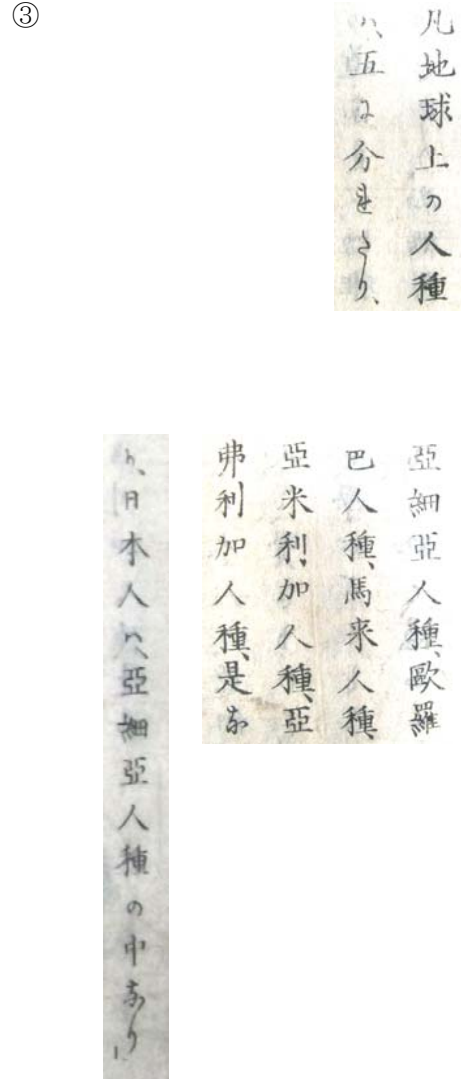 ③
凡地球上の人種
ハ、五に分れたり、
亞細亞人種、歐羅
巴人種、馬来人種、
亞米利加人種、亞
弗利加人種、是な
り、日本人ハ、亞細亞人種の中なり